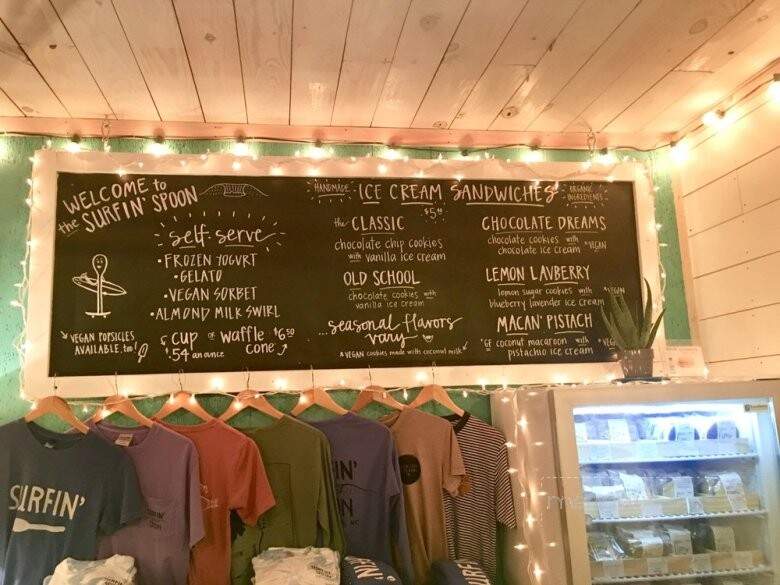 WELCOME to
the SURFIN' SPOON
self-serve
• FROZEN YOGURT
• GELATO
• VEGAN SORBET
• ALMOND MILK SWIRL
VEGAN POPSICLES
AVAILABLE, too!
CUP or waffle $6.50
.54 an ounce cone
HANDMADE ICE CREAM SANDWICHES ORGANIC INGREDIENTS
the CLASSIC
chocolate chip cookies
with vanilla ice cream
OLD SCHOOL
chocolate cookies with
vanilla ice cream
...seasonal flavors
vary
* VEGAN cookies made with coconut milk
CHOCOLATE DREAMS
chocolate cookies with
chocolate ice cream *VEGAN
LEMON LAVBERRY
lemon sugar cookies with
blueberry lavender ice cream *VEGAN
MACAN' PISTACH
*GF coconut macaroon with
pistachio ice cream
SURFIN'